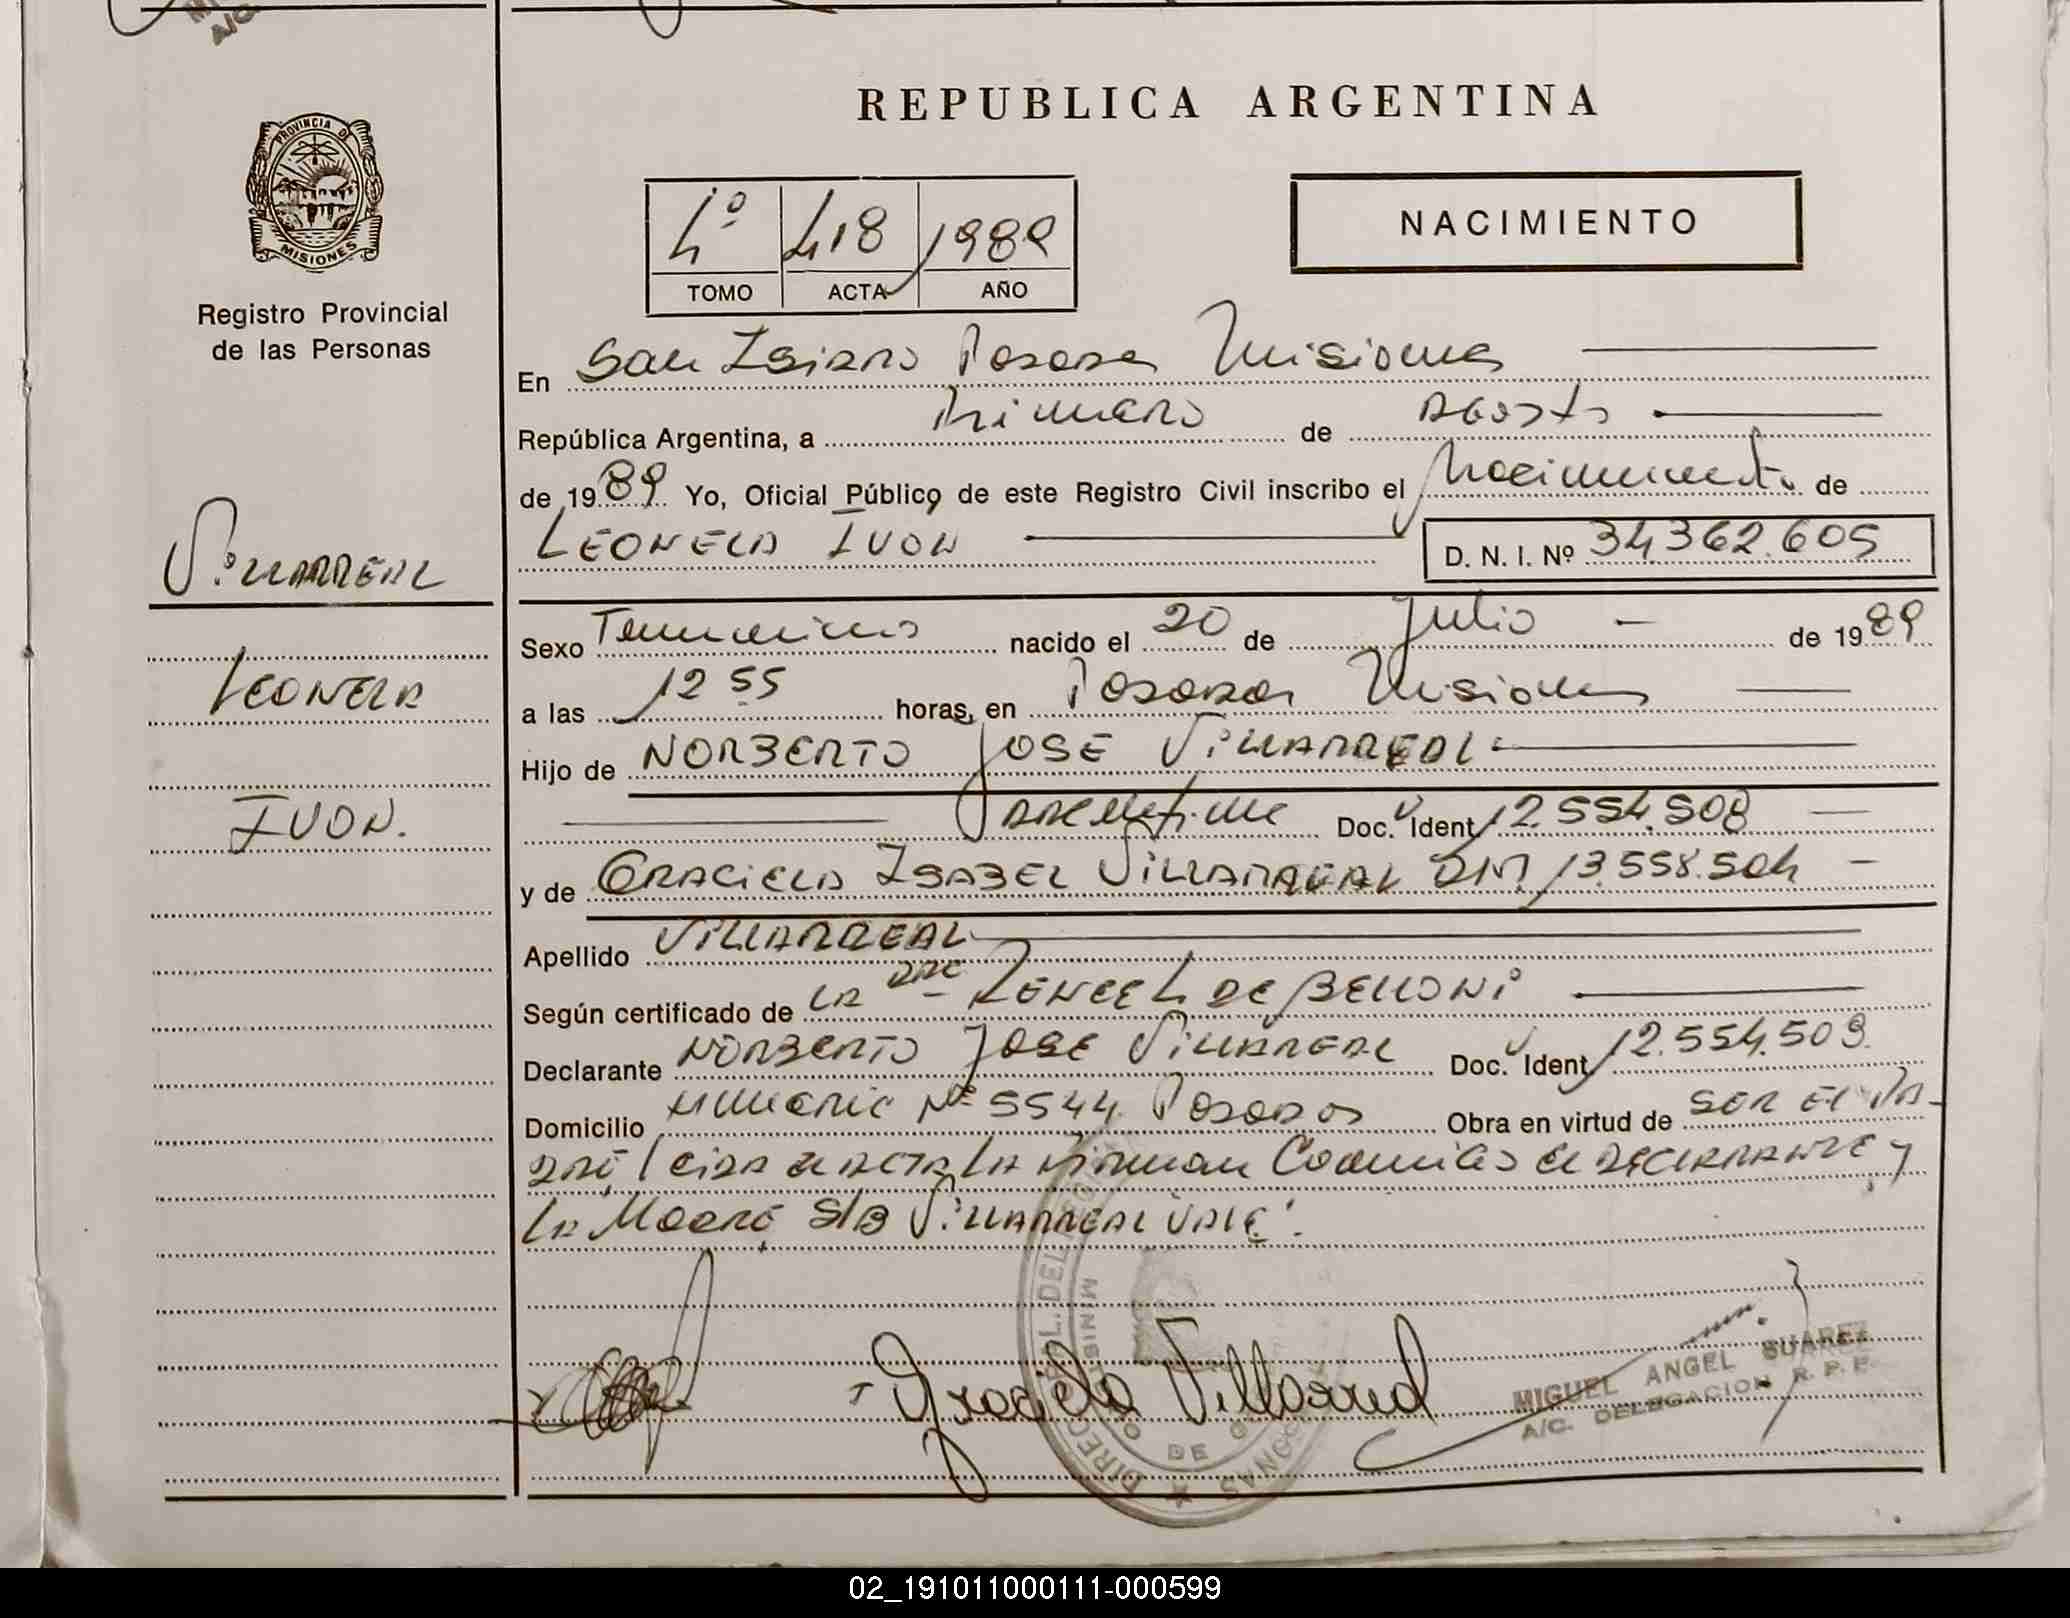 REPUBLICA ARGENTINA
PROVINCIA DE
MISIONES
Registro Provincial
de las Personas
4º 418 1989
TOMO ACTA AÑO
NACIMIENTO
En San Isidro Posadas Misiones
República Argentina, a Primero de Agosto
de 1989 Yo, Oficial Público de este Registro Civil inscribo el Nacimiento de
LEONELA IVON D. N. I. Nº 34362.605
VILLARREAL
LEONELA
IVON.
Sexo Femenino nacido el 20 de Julio de 1989
a las 12 55 horas, en Posadas Misiones
Hijo de NORBERTO JOSE VILLARREAL
Argentino Doc. Ident 12.554.508
y de GRACIELA ISABEL VILLARREAL DNI. 13.558.504
Apellido VILLARREAL
Según certificado de LA DE BELLONI
Declarante NORBERTO JOSE VILLARREAL Doc. Ident 12.554.508
Domicilio Nº 5544 Posadas Obra en virtud de SER EL PA-
DRE, Leida el acta la firman Conmigo el DECLARANTE y
LA MADRE S/B VILLARREAL VALE.
Graciela Villarreal
MIGUEL ANGEL SUAREZ
A/C. DELEGACION R. P. P.
02_191011000111-000599